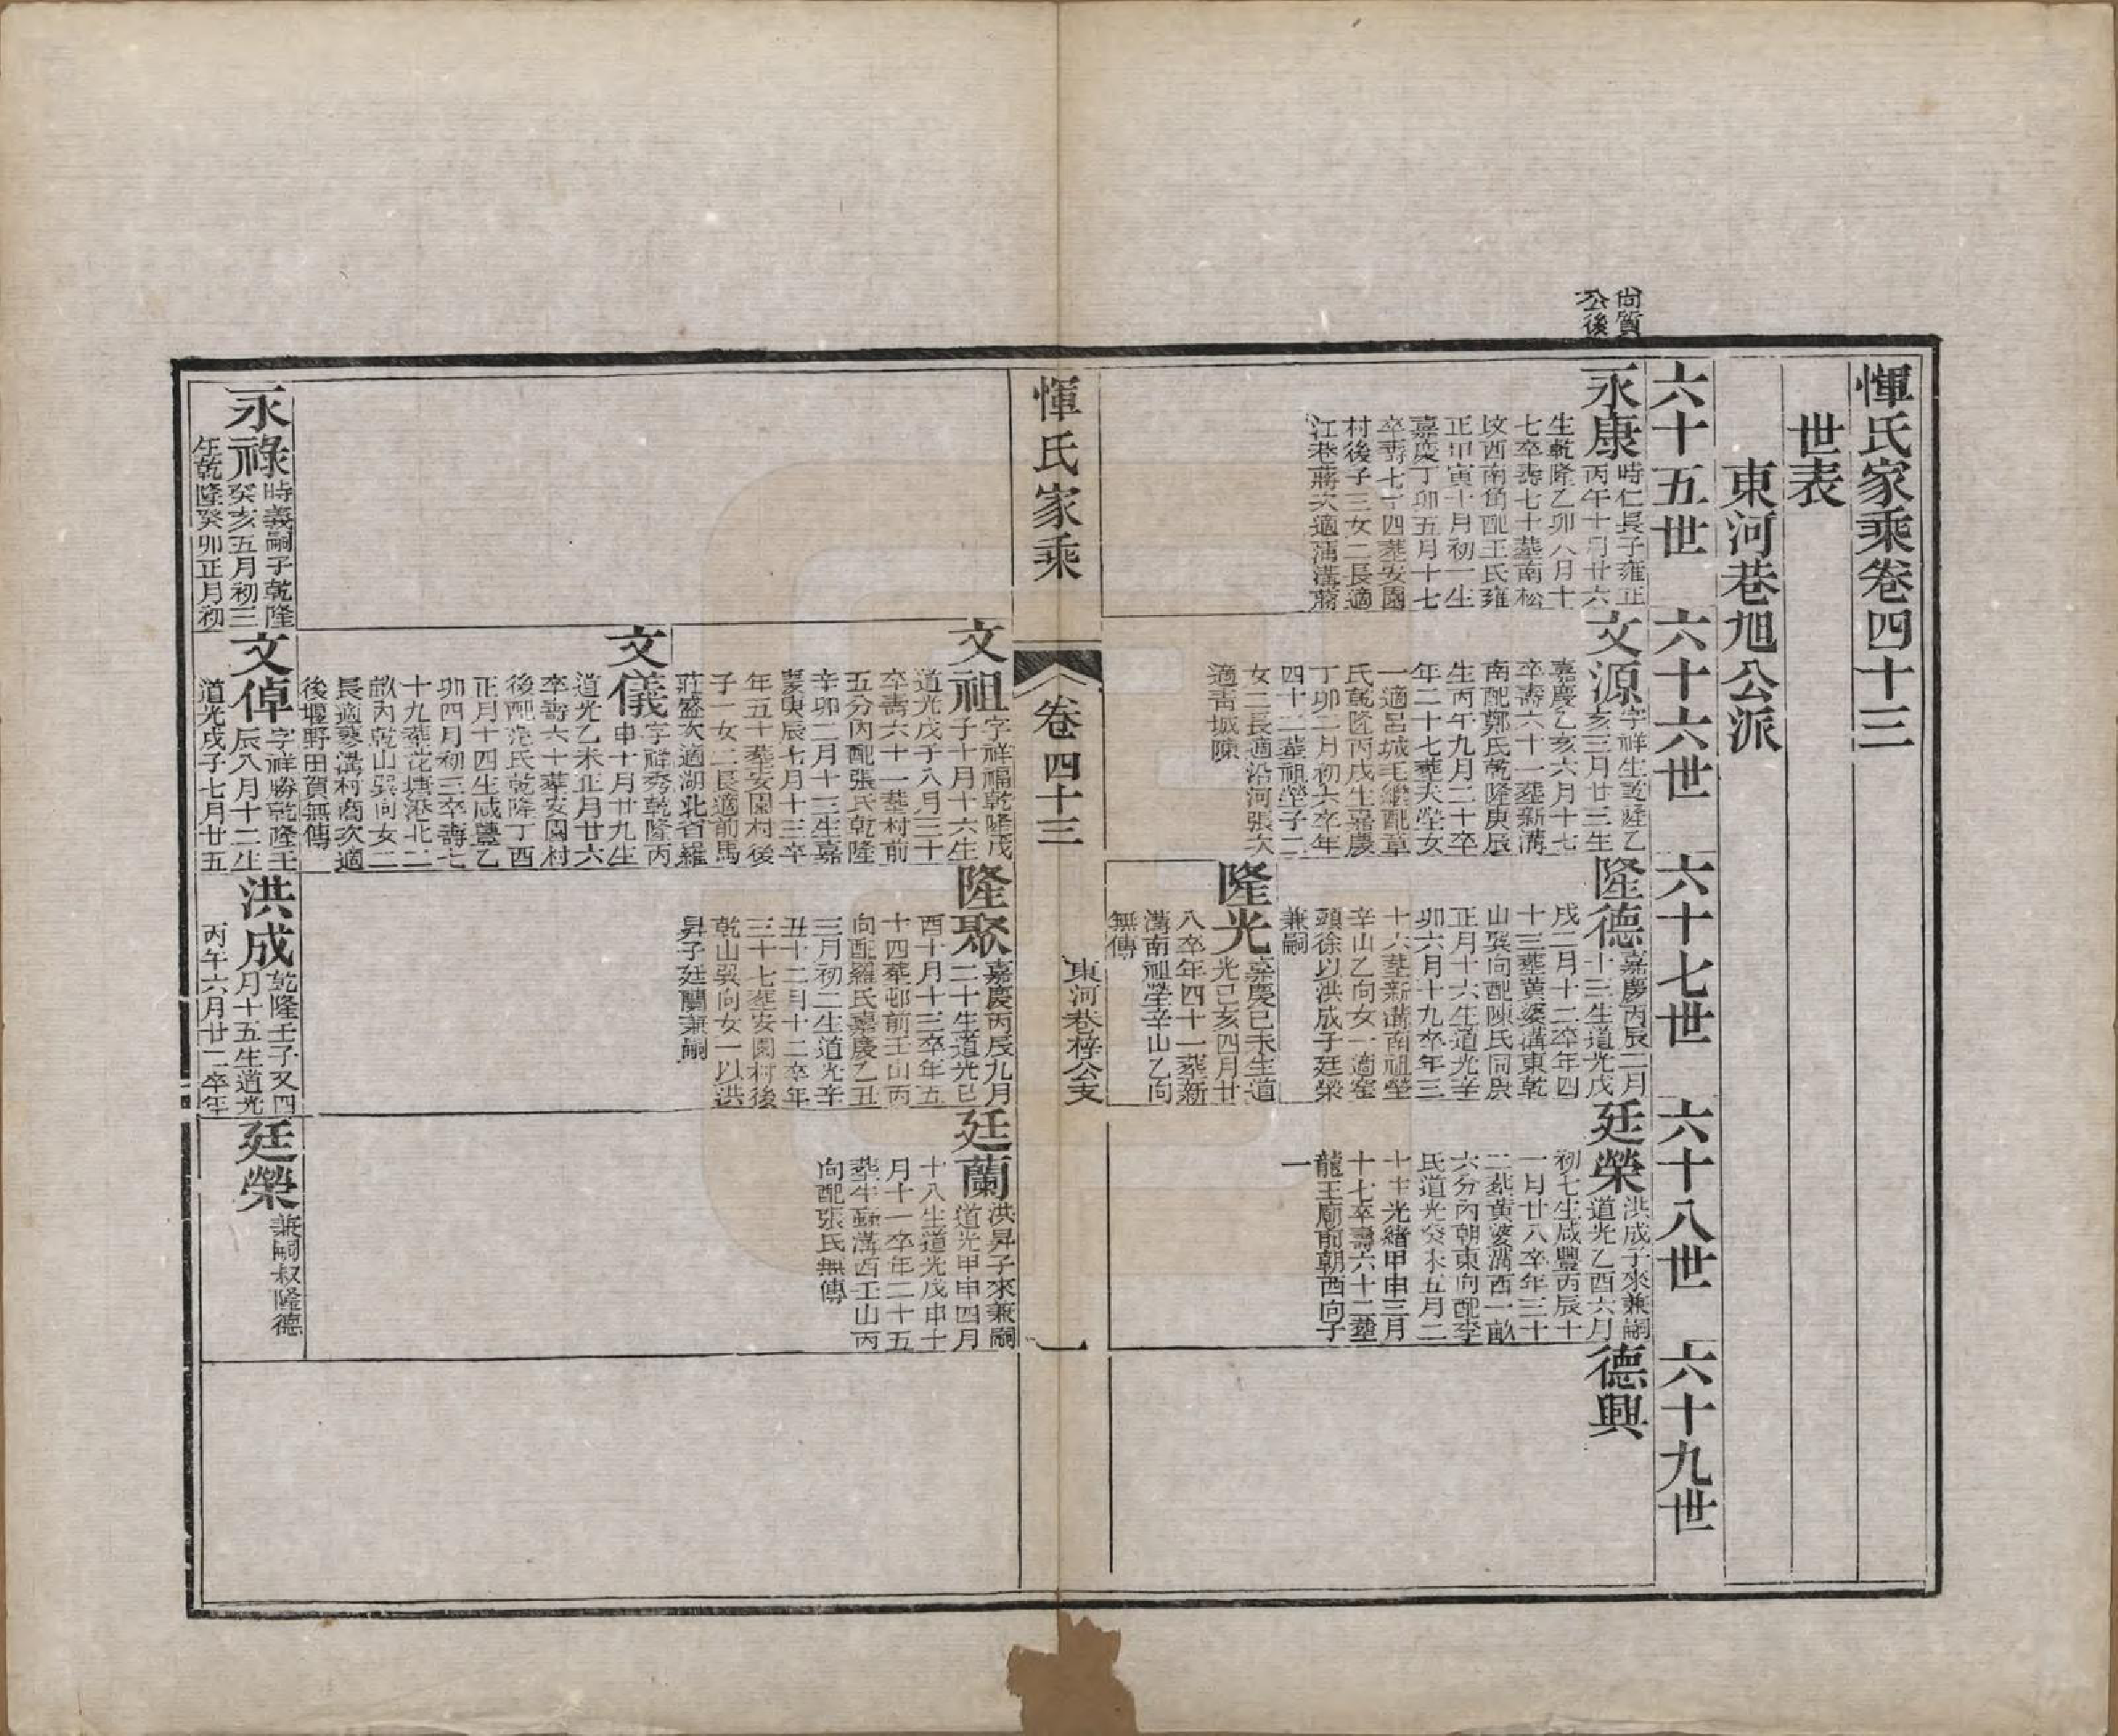 惲氏家乘卷四十三
世表
東河巷旭公派
六十五世
六十六世
六十七世
六十八世
六十九世
尙質
公後
永康
時仁長子雍正
丙午十月廿六
生乾隆乙卯八月十
七卒壽七十葬南松
坟西南角配王氏雍
正甲寅十月初一生
嘉慶丁卯五月十七
卒壽七十四葬安園
村後子三女二長適
江巷蔣次適蒲溝蔣
文源
字祥生乾隆乙
亥三月廿三生
嘉慶乙亥六月十七
卒壽六十一葬新溝
南配鄭氏乾隆庚辰
生丙午九月二十卒
年二十七葬大塋女
一適呂城毛繼配章
氏乾隆丙戌生嘉慶
丁卯二月初六卒年
四十二葬祖塋子二
女二長適沿河張次
適靑城陳
隆德
嘉慶丙辰二月
十三生道光戊
戌二月十二卒年四
十三葬黄婆溝東乾
山巽向配陳氏同庚
正月十六生道光辛
卯六月十九卒年三
十六葬新溝南祖塋
辛山乙向女一適窰
頭徐以洪成子廷榮
兼嗣
隆光
嘉慶己未生道
光己亥四月廿
八卒年四十一葬新
溝南祖塋辛山乙向
無傳
廷榮
洪成子來兼嗣
道光乙酉六月
初七生咸豐丙辰十
一月廿八卒年三十
二葬黄婆溝西一畝
六分內朝東向配李
氏道光癸未五月二
十十光緖甲申三月
十七卒壽六十二葬
龍王廟前朝西向子
一
德興
惲氏家乘
卷四十三
東河巷梓公支
一
文祖
字祥福乾隆戊
子十月十六生
道光戊子八月三十
卒壽六十一葬村前
五分內配張氏乾隆
辛卯二月十三生嘉
慶庚辰七月十三卒
年五十葬安園村後
子一女二長適前馬
莊盛次適湖北省羅
文儀
字祥秀乾隆丙
申十月廿九生
道光乙未正月廿六
卒壽六十葬安園村
後配范氏乾隆丁酉
正月十四生咸豐乙
卯四月初三卒壽七
十九葬花塘港北二
畝內乾山巽向女二
長適蓼溝村商次適
後堰野田賀無傳
隆聚
嘉慶丙辰九月
二十生道光己
酉十月十三卒年五
十四葬邨前壬山丙
向配羅氏嘉慶乙丑
三月初二生道光辛
丑十二月十二卒年
三十七葬安園村後
乾山巽向女一以洪
昇子廷蘭兼嗣
廷蘭
洪昇子來兼嗣
道光甲申四月
十八生道光戊申十
月十一卒年二十五
葬牛蘇溝西壬山丙
向配張氏無傳
永祿
時義嗣子乾隆
癸亥五月初三
生乾隆癸卯正月初
文倬
字祥勝乾隆壬
辰八月十二生
道光戊子七月廿五
洪成
乾隆壬子又四
月十五生道光
丙午六月廿二卒年
廷榮
兼嗣叔隆德